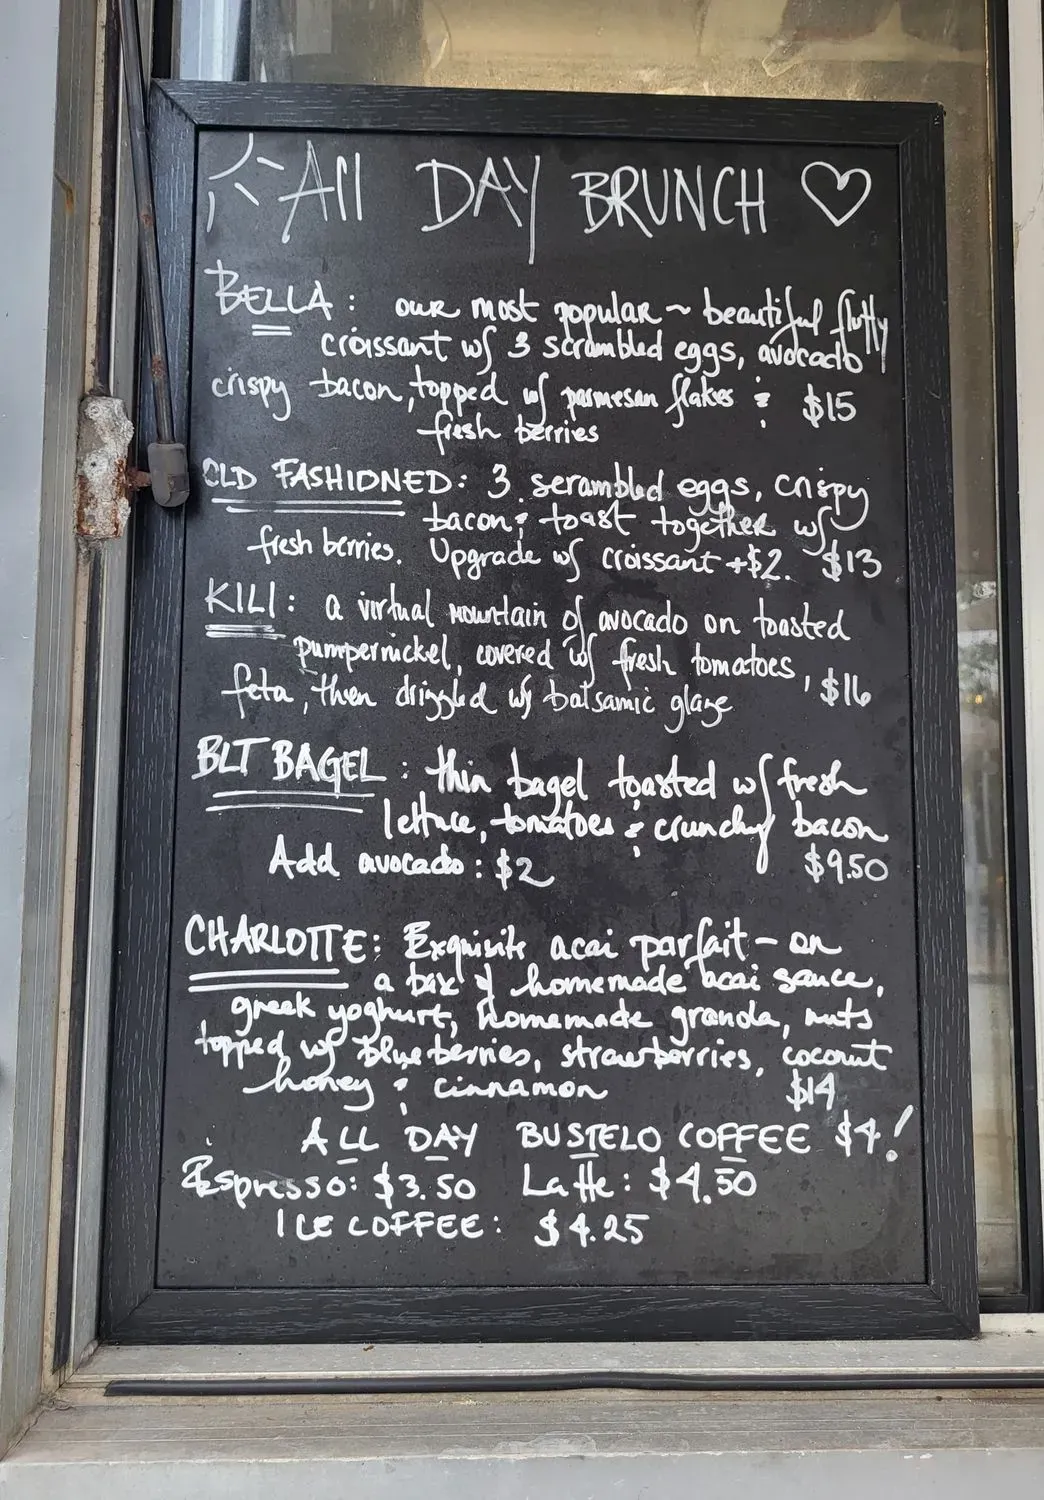 All DAY BRUNCH
BELLA: our most popular ~ beautiful fluffy
croissant w/ 3 scrambled eggs, avocado
crispy bacon, topped w/ parmesan flakes & $15
fresh berries
OLD FASHIONED: 3 scrambled eggs, crispy
bacon & toast together w/
fresh berries. Upgrade w/ croissant +$2. $13
KILI: a virtual mountain of avocado on toasted
pumpernickel, covered w/ fresh tomatoes,
feta, then drizzled w/ balsamic glaze $16
BLT BAGEL: thin bagel toasted w/ fresh
lettuce, tomatoes & crunchy bacon
Add avocado: $2 $9.50
CHARLOTTE: Exquisite acai parfait - on
a base of homemade acai sauce,
greek yoghurt, homemade granola, nuts
topped w/ blueberries, strawberries, coconut
honey & cinnamon $14
ALL DAY BUSTELO COFFEE $4!
Espresso: $3.50 Latte: $4.50
ICE COFFEE: $4.25